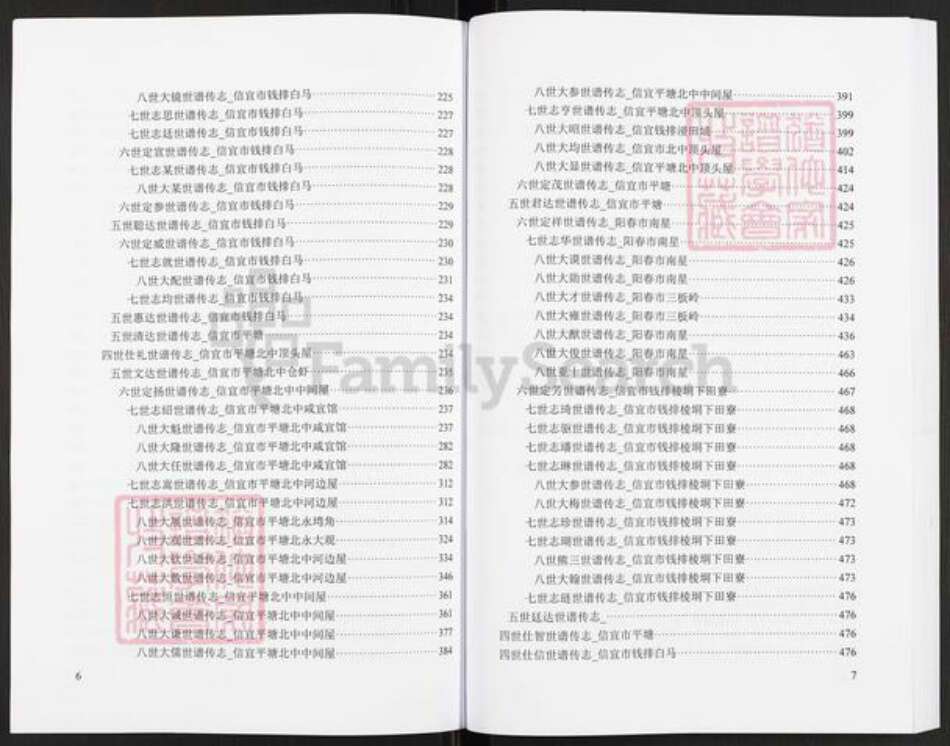 八世大镜世谱传志_信宜市钱排白马 225
七世志思世谱传志_信宜市钱排白马 227
七世志廷世谱传志_信宜市钱排白马 227
六世定宣世谱传志_信宜市钱排白马 228
七世志某世谱传志_信宜市钱排白马 228
八世大某世谱传志_信宜市钱排白马 228
六世定参世谱传志_信宜市钱排白马 229
五世聪达世谱传志_信宜市钱排白马 229
六世定威世谱传志_信宜市钱排白马 230
七世志就世谱传志_信宜市钱排白马 230
八世大配世谱传志_信宜市钱排白马 231
七世志均世谱传志_信宜市钱排白马 234
五世惠达世谱传志_信宜市钱排白马 234
五世清达世谱传志_信宜市平塘 234
四世仕礼世谱传志_信宜市平塘北中顶头屋 234
五世文达世谱传志_信宜市平塘北中仓 235
六世定扬世谱传志_信宜市平塘北中中间屋 236
七世志绍世谱传志_信宜市平塘北中咸宜馆 237
八世大魁世谱传志_信宜市平塘北中咸宜馆 237
八世大隆世谱传志_信宜市平塘北中咸宜馆 282
八世大任世谱传志_信宜市平塘北中咸宜馆 282
七世志嵩世谱传志_信宜市平塘北中河边屋 312
七世志洪世谱传志_信宜市平塘北中河边屋 312
八世大展世谱传志_信宜市平塘北永塆角 314
八世大观世谱传志_信宜市平塘北永大观 324
八世大钦世谱传志_信宜市平塘北中河边屋 334
八世大数世谱传志_信宜市平塘北中河边屋 346
七世志恒世谱传志_信宜平塘北中中间屋 361
八世大诚世谱传志_信宜平塘北中中间屋 361
八世大谦世谱传志_信宜平塘北中中间屋 377
八世大儒世谱传志_信宜平塘北中中间屋 384
6
八世大参世谱传志_信宜平塘北中中间屋 391
七世志亨世谱传志_信宜平塘北中顶头屋 399
八世大昭世谱传志_信宜钱排 399
八世大均世谱传志_信宜市北中顶头屋 402
八世大显世谱传志_信宜平塘北中顶头屋 414
六世定茂世谱传志_信宜市平塘 424
五世君达世谱传志_信宜市平塘 424
六世定祥世谱传志_阳春市南星 425
七世志华世谱传志_阳春市南星 425
八世大谟世谱传志_阳春市南星 426
八世大勋世谱传志_阳春市南星 426
八世大才世谱传志_阳春市三板岭 433
八世大雍世谱传志_阳春市三板岭 434
八世大猷世谱传志_阳春市南星 436
八世大俊世谱传志_阳春市南星 463
八世亚土世谱传志_阳春市南星 466
六世定芳世谱传志_信宜市钱排棱垌下田寮 467
七世志琦世谱传志_信宜市钱排棱垌下田寮 468
七世志驱世谱传志_信宜市钱排棱垌下田寮 468
七世志璠世谱传志_信宜市钱排棱垌下田寮 468
七世志琳世谱传志_信宜市钱排棱垌下田寮 468
八世大参世谱传志_信宜市钱排棱垌下田寮 468
八世大梅世谱传志_信宜市钱排棱垌下田寮 472
七世志珍世谱传志_信宜市钱排棱垌下田寮 473
七世志瑚世谱传志_信宜市钱排棱垌下田寮 473
八世熊三世谱传志_信宜市钱排棱垌下田寮 473
八世大翰世谱传志_信宜市钱排棱垌下田寮 473
七世志琏世谱传志_信宜市钱排棱垌下田寮 476
五世廷达世谱传志_ 476
四世仕智世谱传志_信宜市平塘 476
四世仕信世谱传志_信宜市钱排白马 476
7
FamilySearch